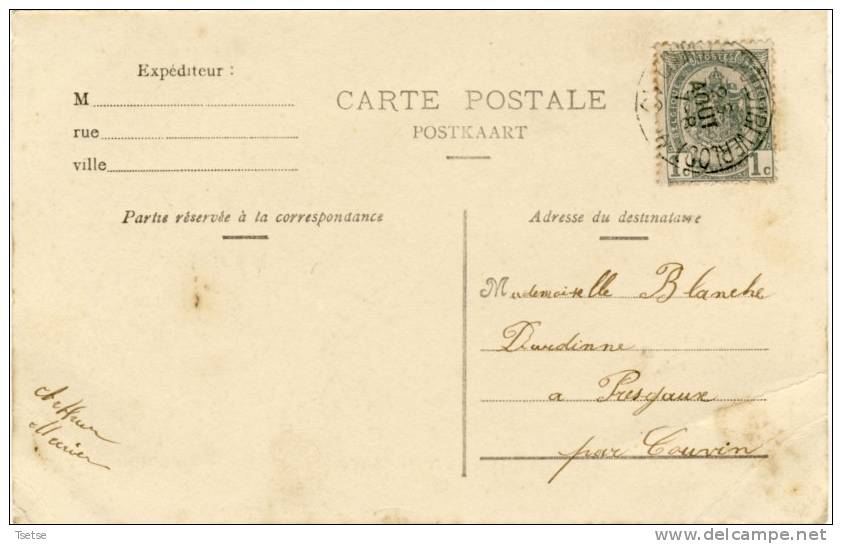 Expéditeur :
M
rue
ville
CARTE POSTALE
POSTKAART
POSTES
AOUT
1c 1c
Partie réservée à la correspondance
Adresse du destinataire
Mademoiselle Blanche
Dardinne
a Presgaux
par Couvin
Tsetse
delcampe.net